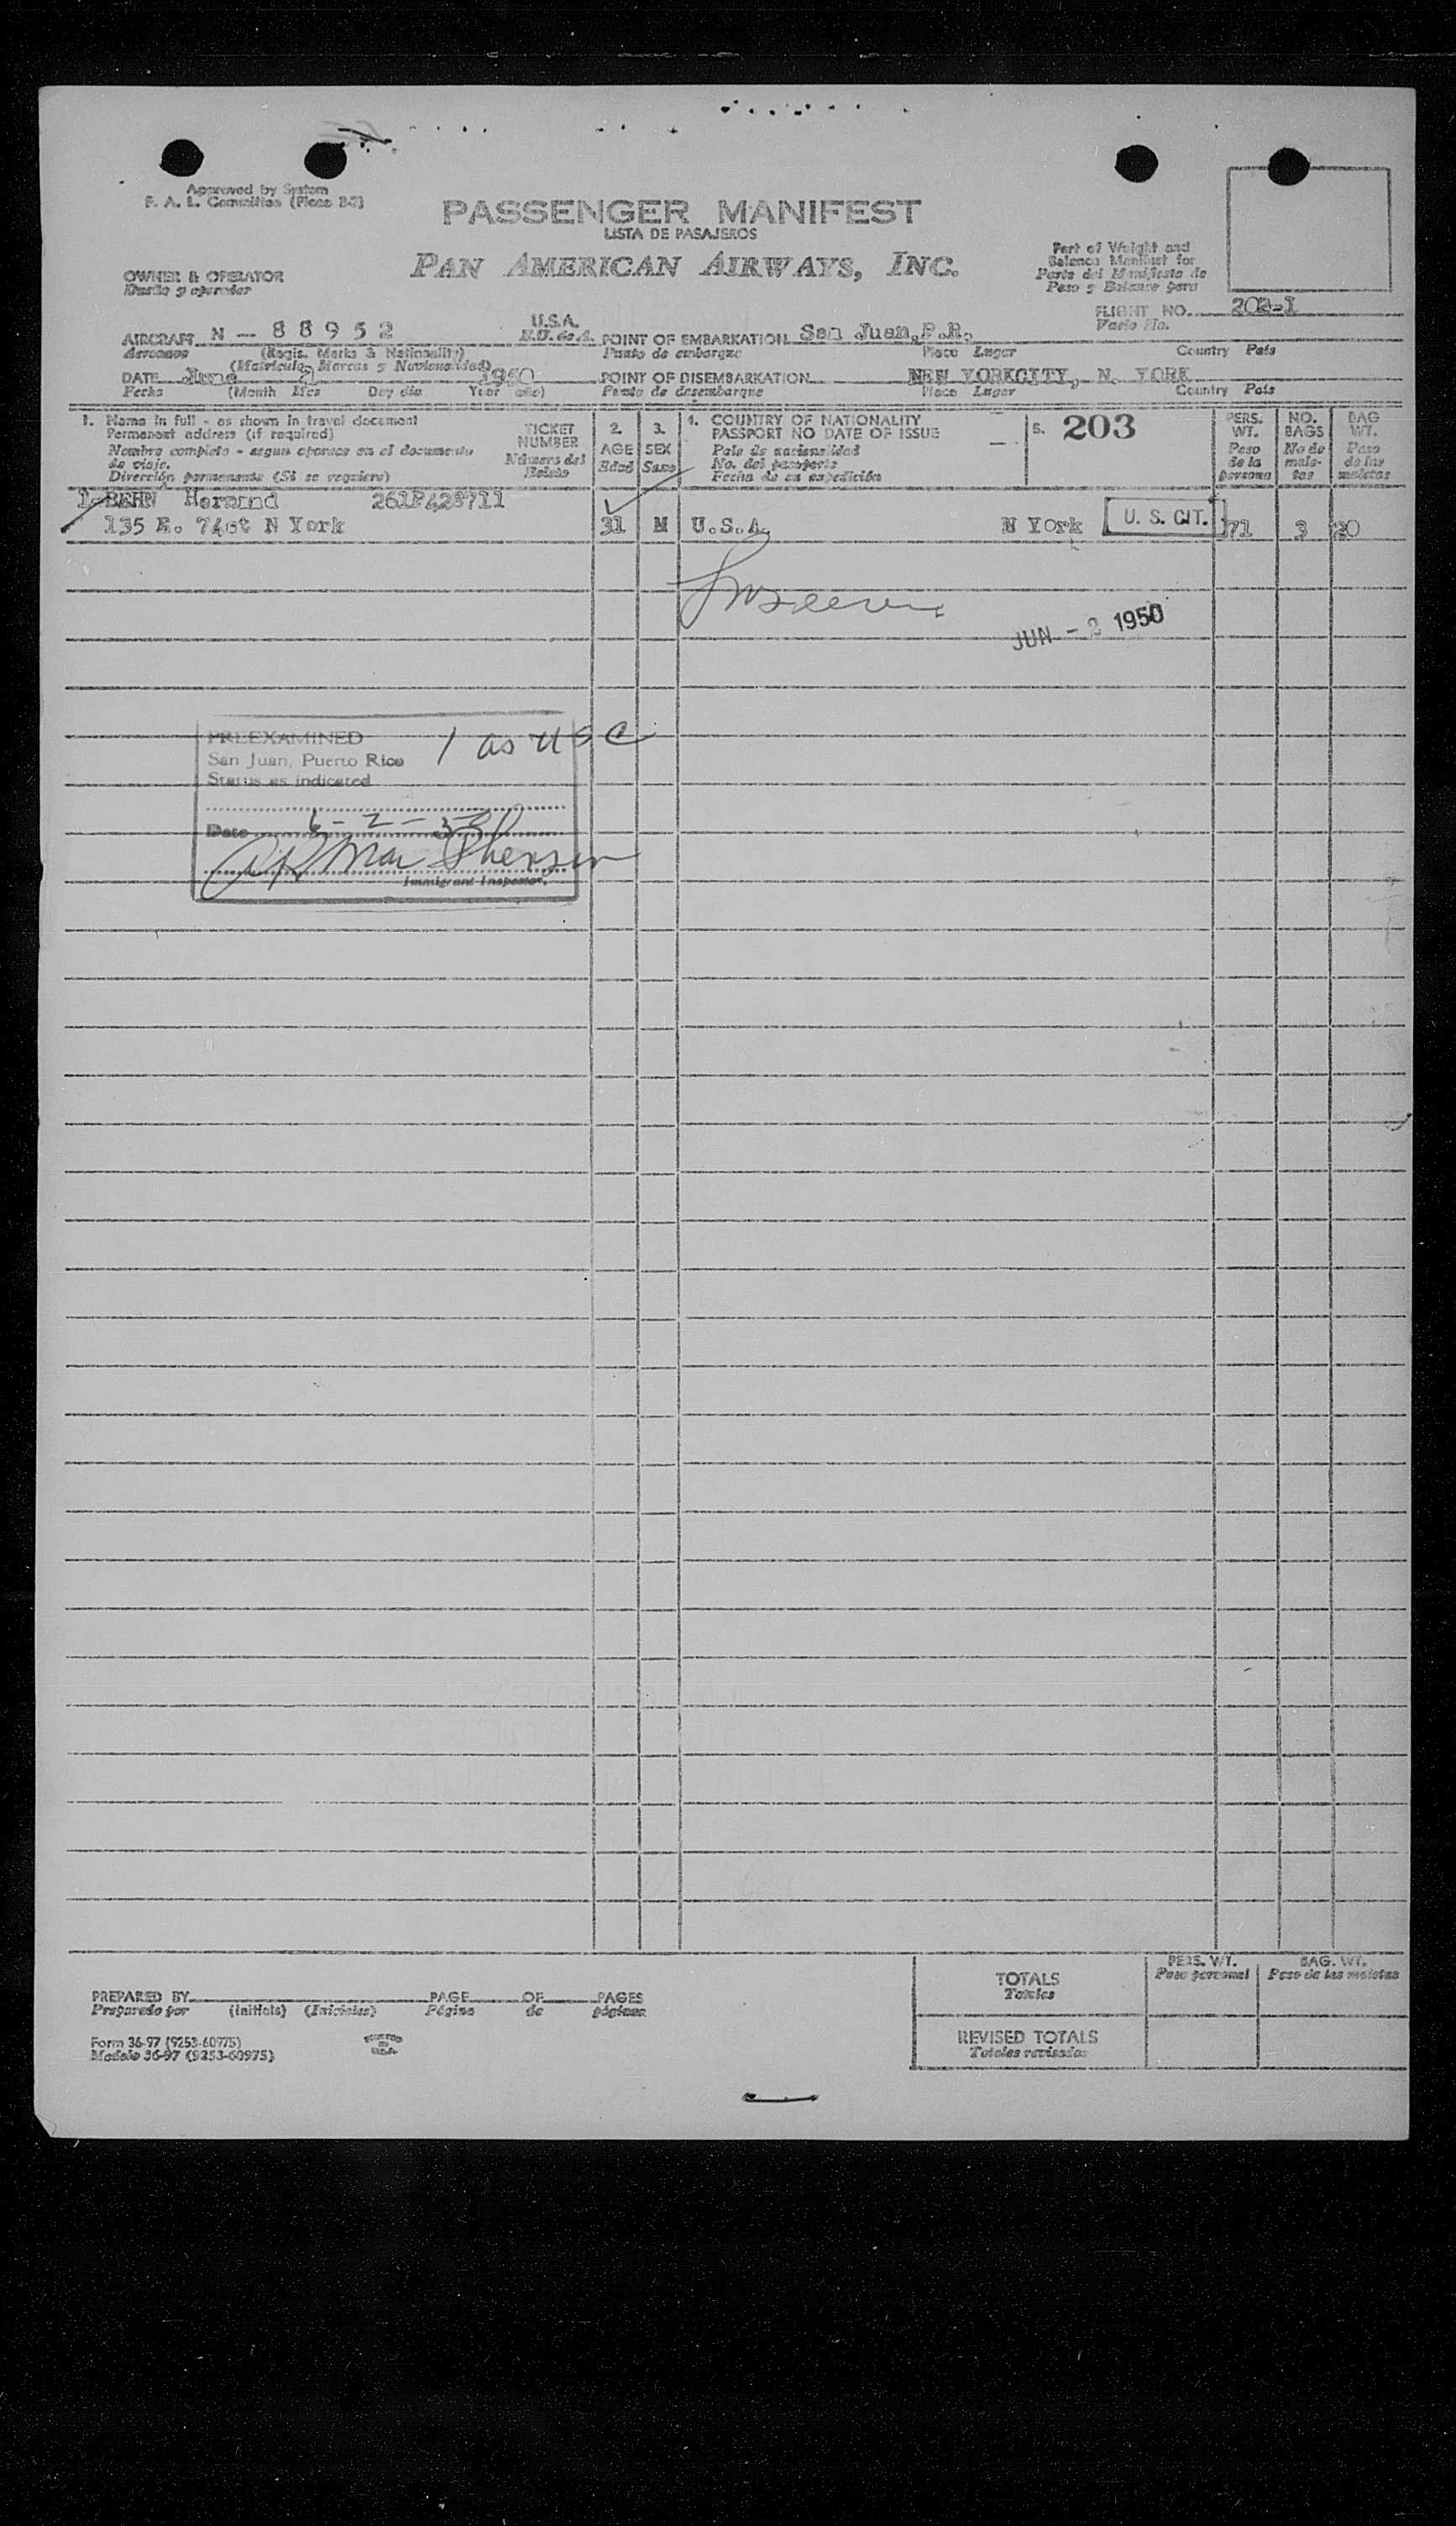 Approved by System
F. A. L. Committee (Picao 2-7)
PASSENGER MANIFEST
LISTA DE PASAJEROS
PAN AMERICAN AIRWAYS, INC.
Part of Weight and
Balance Manifest for
Parte del Manifiesto de
Peso y Balance para
OWNER & OPERATOR
Dueño y operador
FLIGHT NO. 202-1
Vuelo No.
AIRCRAFT N - 88952 U.S.A. POINT OF EMBARKATION San Juan,P.R.
Aeronave (Regis. Marks & Nationality) E.U. de A. Punto de embarque Place Lugar Country País
(Matrícula, Marcas y Nacionalidad)
DATE June 2 1950 POINT OF DISEMBARKATION NEW YORKCITY, N. YORK
Fecha (Month Mes Day día Year año) Punto de desembarque Place Lugar Country País
1. Name in full - as shown in travel document
Permanent address (if required)
Nombre completo - segun aparece en el documento
de viaje.
Dirección permanente (Si se requiere)
TICKET
NUMBER
Número del
Boleto
2.
AGE
Edad
3.
SEX
Sexo
4. COUNTRY OF NATIONALITY
PASSPORT NO DATE OF ISSUE
País de nacionalidad
No. del pasaporte
Fecha de su expedición
5. 203
PERS.
WT.
Peso
de la
persona
NO.
BAGS
No de
male-
tas
BAG
WT.
Peso
de las
maletas
1-BEHN Hernand 261P428711
135 E. 74st N York 31 M U.S.A. N York U. S. CIT. 171 3 20
JUN - 2 1950
PREEXAMINED 1 as USC
San Juan, Puerto Rico
Status as indicated
Date 6-2-50
Immigrant Inspector.
PERS. WT. BAG. WT.
Peso personal Peso de las maletas
TOTALS
Totales
PREPARED BY PAGE OF PAGES
Preparado por (Initials) (Iniciales) Página de páginas
REVISED TOTALS
Totales revisados
Form 36-97 (9253-60975)
Modelo 36-97 (9253-60975)
PRINTED
IN
U.S.A.